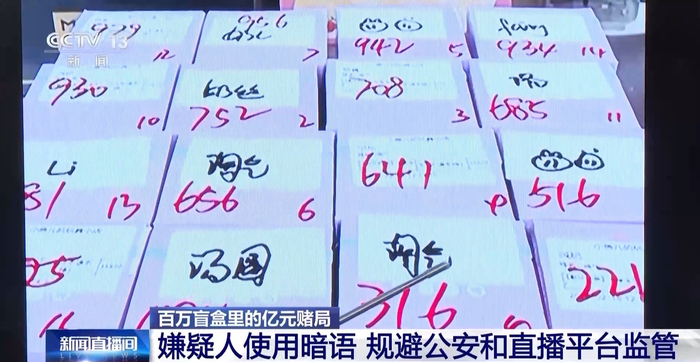 CCTV 13
新闻
12
7
942
5
fang
934
14
930
10
奶丝
752
2
708
3
685
11
Li
81
13
淘气
656
6
641
9
516
汤圆
淘气
316
221
百万盲盒里的亿元赌局
新闻直播间
嫌疑人使用暗语 规避公安和直播平台监管